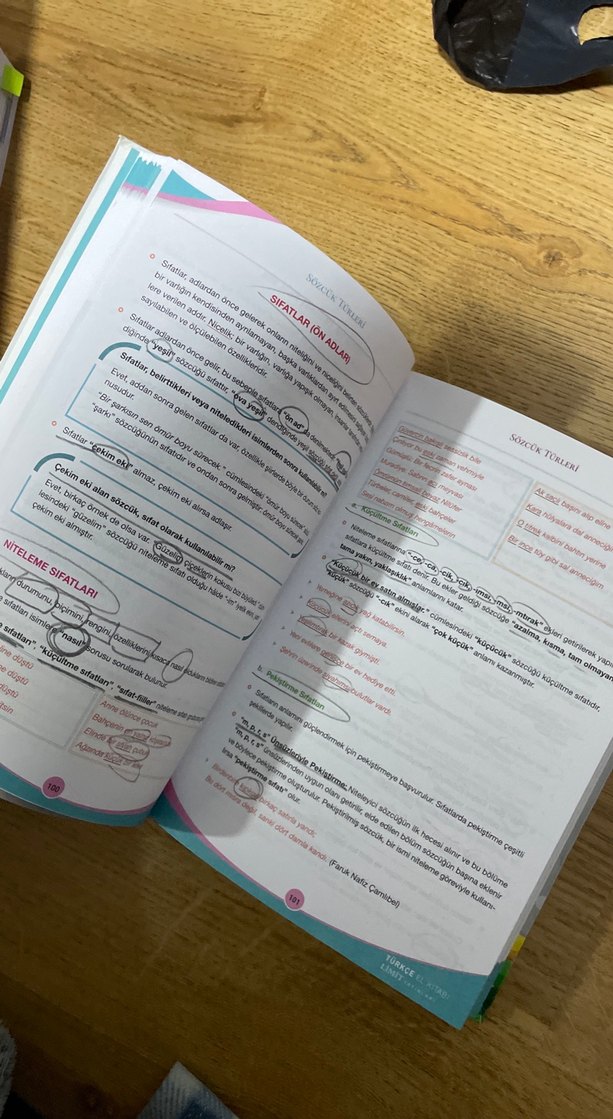 SÖZCÜK TÜRLERİ
SIFATLAR (ÖN ADLAR)
Sıfatlar, adlardan önce gelerek onların niteliğini ve niceliğini belirten
bir varlığın kendisinden ayrılamayan, başka varlıklardan ayırt edilmesini
lere verilen addır. Nicelik; bir varlığın, varlığa yapışık olmayan,
sayılabilen ve ölçülebilen özellikleridir.
Sıfatlar adlardan önce gelir, bu sebeple sıfatlara "ön ad" da denmektedir.
diğinde "yeşil" sözcüğü sıfattır, "ova yeşil" dendiğinde yeşil
Sıfatlar, belirttikleri veya niteledikleri isimlerden sonra kullanılabilir mi?
Evet, addan sonra gelen sıfatlar da var, özellikle şiirlerde böyle bir durum
nusudur.
"Bir şarkısın sen ömür boyu sürecek" cümlesindeki "ömür boyu sürecek"
"şarkı" sözcüğünün sıfatıdır ve ondan sonra gelmiştir.
Sıfatlar "çekim eki" almaz, çekim eki alırsa adlaşır.
Çekim eki alan sözcük, sıfat olarak kullanılabilir mi?
Evet, birkaç örnek de olsa var. Güzelim çiçeklerin kokusu bizi büyüledi.
lesindeki "güzelim" sözcüğü niteleme sıfatı olduğu hâlde "-im"
çekim eki almıştır.
NİTELEME SIFATLARI
durumunu, biçimini, rengini, özelliklerini kısaca nasıl olduklarını
sıfatları isimlere "nasıl" sorusu sorularak bulunur.
sıfatları", "küçültme sıfatları" "sıfat-fiiller"
düştü
düştü
düştü
Anne ölünce çocuk
Bahçenin en yalnız köşesinde
Elinde bir siyah çubuk
Ağzında küçük bir leke
100
SÖZCÜK TÜRLERİ
Güvercin bakışlı sessizlik bile
Çınlıyor bu eski zaman vehmiyle
Gümüşlü bir fecrin zafer aynası
Muradiye Sabrın acı meyvası
Ömrünün timsali beyaz Nilüfer
Türbeler, camiler, eski bahçeler
Sesi nabzım olmuş hengâmelerin
Ak saçlı başını alıp eline
Kara hülyalara dal anneciğim
O titrek kalbini bahtın yeline
Bir ince tüy gibi sal anneciğim
a. Küçültme Sıfatları
Niteleme sıfatlarına "-ce, -ca, -cik, -cık, -imsi, -msı, -mtırak" ekleri getirilerek yapılan
sıfatlara küçültme sıfatı denir. Bu ekler geldiği sözcüğe "azalma, kısma, tam olmayan
tama yakın, yaklaşıklık" anlamlarını katar.
"Küçücük bir ev satın almışlar." cümlesindeki "küçücük" sözcüğü küçültme sıfatıdır.
"küçük" sözcüğü "-cık" ekini alarak "çok küçük" anlamı kazanmıştır.
Yemeğine azıcık yağ katabilirsin.
bir kazak giymişti.
Yeni evlilere genişçe bir ev hediye etti.
Şehrin üzerinde bulutlar vardı.
b. Pekiştirme Sıfatları
Sıfatların anlamını güçlendirmek için pekiştirmeye başvurulur. Sıfatlarda pekiştirme çeşitli
şekillerde yapılır.
"m, p, r, s" Ünsüzleriyle Pekiştirme: Niteleyici sözcüğün ilk hecesi alınır ve bu bölüme
"m, p, r, s" ünsüzlerinden uygun olanı getirilir, elde edilen bölüm sözcüğün başına eklenir
ve böylece pekiştirme oluşturulur. Pekiştirilmiş sözcük, bir ismi niteleme göreviyle kullanı-
lırsa "pekiştirme sıfatı" olur.
birkaç satırla yandı,
Bu dört mısra değil, sanki dört damla kandı. (Faruk Nafiz Çamlıbel)
101
TÜRKÇE EL KİTABI
LİMİT YAYINLARI